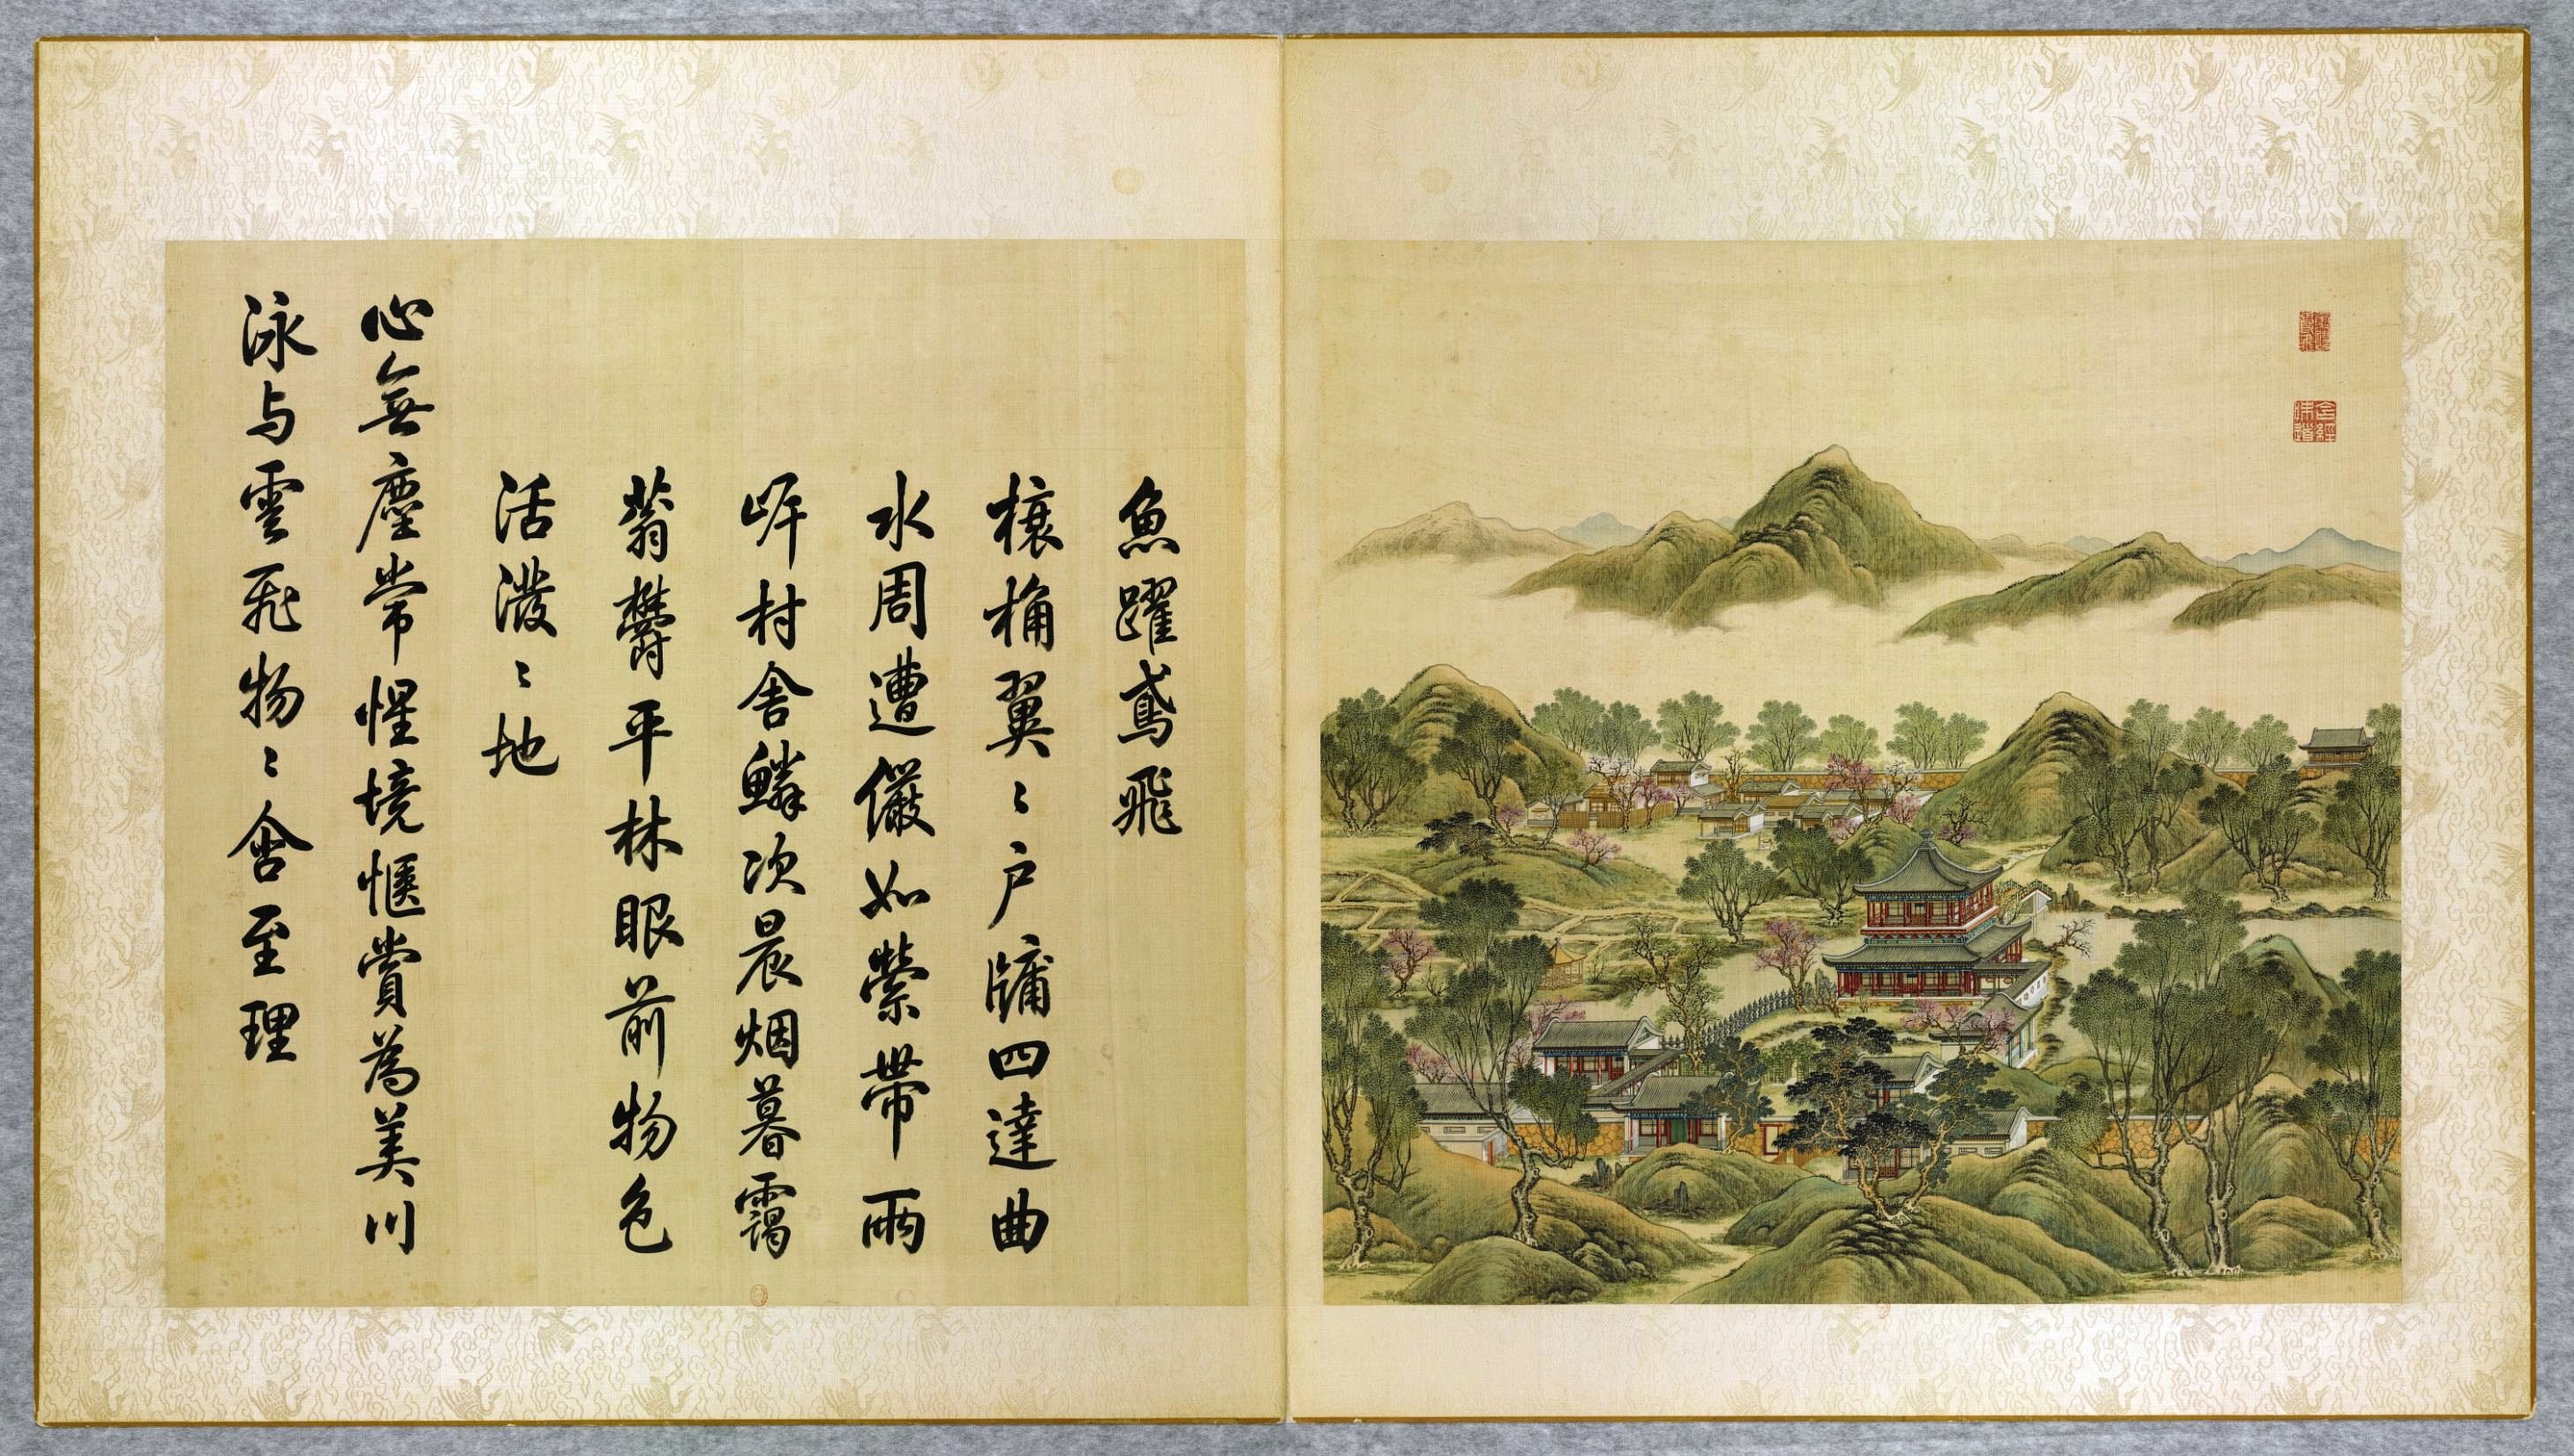 含經
味道
魚躍鳶飛
榱桷翼〻户牖四達曲
水周遭儼如縈帶兩
岸村舍鱗次晨烟暮靄
蓊欝平林眼前物色
活潑〻地
心無塵常惺境愜賞為美川
泳与雲飛物〻含至理